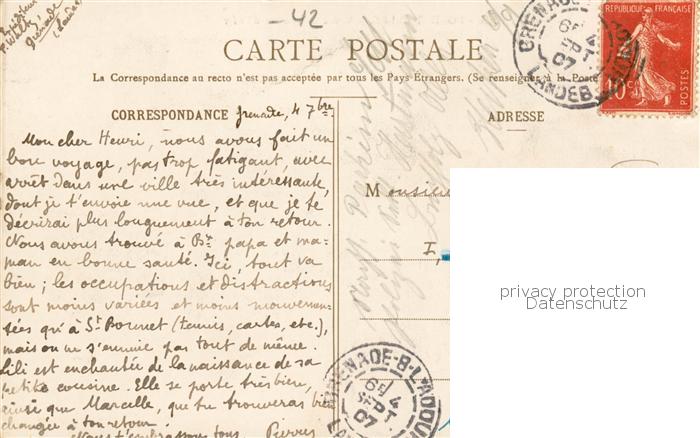 -42
Grenade
(Landes)
CARTE POSTALE
La Correspondance au recto n'est pas acceptée par tous les Pays Étrangers. (Se renseigner à la Poste
CORRESPONDANCE
ADRESSE
Grenade, 4 7bre
Mon cher Henri, nous avons fait un
bon voyage, pas trop fatigant, avec
arrêt dans une ville très intéressante,
dont je t'envoie une vue, et que je te
décrirai plus longuement à ton retour.
Nous avons trouvé à Bx papa et ma-
man en bonne santé. Ici, tout va
bien; les occupations et distractions
sont moins variées et moins mouvemen-
tées qu'à St Bonnet (tennis, cartes, etc.),
mais on ne s'ennuie pas tout de même.
Lili est enchantée de la naissance de sa
petite cousine. Elle se porte très bien,
ainsi que Marcelle, que tu trouveras bien
changée à ton retour.
Nous t'embrassons tous. Pierre
Monsieur
I,
REPUBLIQUE FRANÇAISE
10
POSTES
GRENADE-S-L'ADOUR
4
SEPT
07
LANDES
GRENADE-S-L'ADOUR
4
SEPT
07
privacy protection
Datenschutz